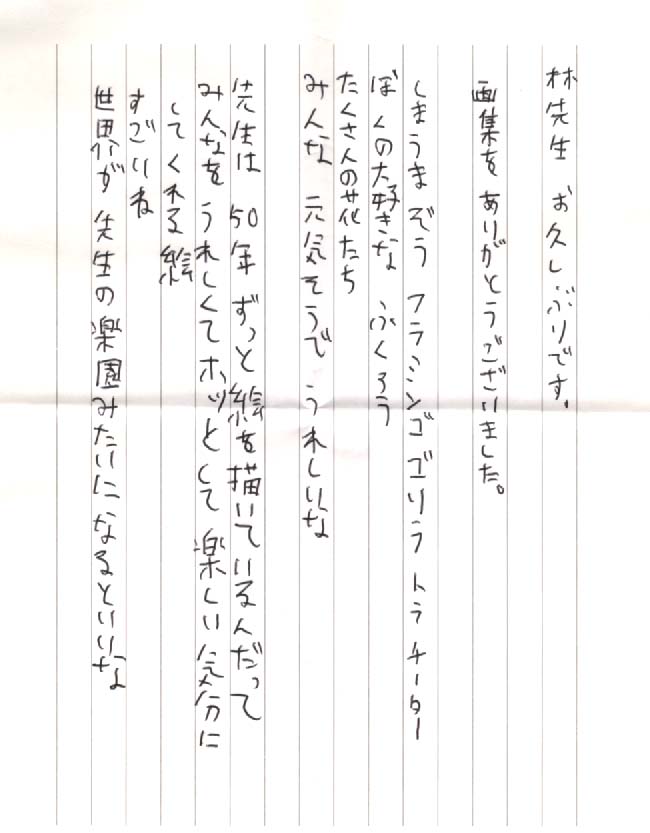 林先生 お久しぶりです。
画集を ありがとうございました。
しまうま ぞう フラミンゴ ゴリラ トラ チーター
ぼくの大好きな ふくろう
たくさんの花たち
みんな 元気そうで うれしいな
先生は 50年 ずっと絵を描いているんだって
みんなを うれしくて ホッとして 楽しい気分に
してくれる 絵
すごいね
世界が 先生の楽園みたいに なるといいな